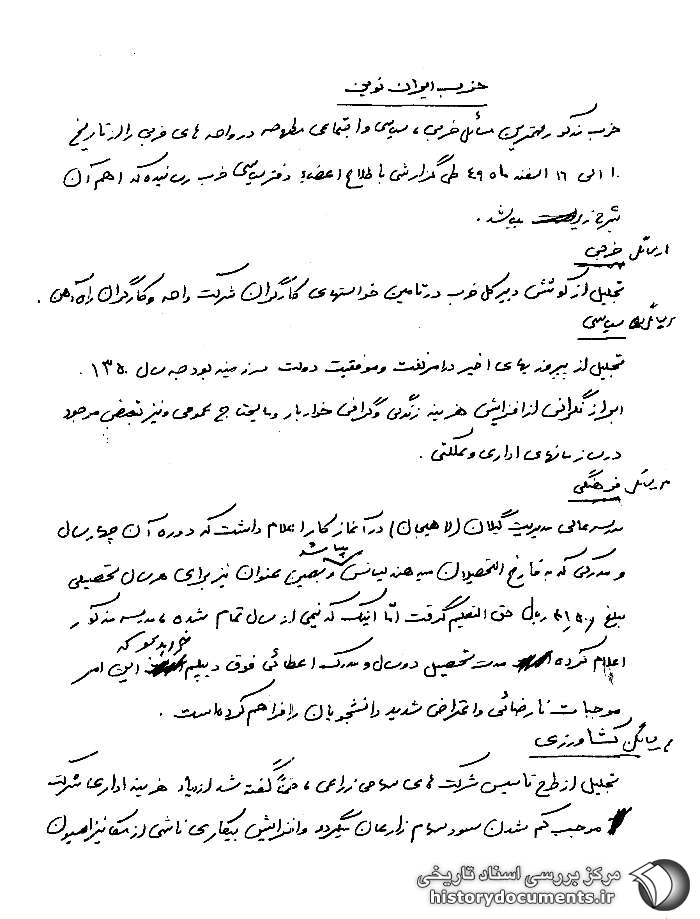 حزب ایران نوین
حزب مذکور مهمترین مسائل حزبی، سیاسی و اجتماعی مطروحه در واحدهای حزبی را از تاریخ
۱۰ الی ۱۶ اسفند ماه ۴۹ طی گزارشی باطلاع اعضاء دفتر سیاسی حزب رسانیده که اهم آن
بشرح زیر میباشد.
۱ـ مسائل حزبی
تجلیل از کوشش دبیر کل حزب در تامین خواستهای کارگران شرکت واحد و کارگران راه آهن.
۲ـ مسائل سیاسی
تجلیل از پیروزیهای اخیر در امر نفت و موفقیت دولت در زمینه بودجه سال ۱۳۵۰.
ابراز نگرانی از افزایش هزینه زندگی و گرانی خواربار و مایحتاج عمومی و نیز تبعیض موجود
در سازمانهای اداری و مملکتی.
۳ـ مسائل فرهنگی
مدرسه عالی مدیریت گیلان (لاهیجان) در آغاز کار اعلام داشت که دوره آن چهار سال
و مدرکی که به فارغ التحصیلان میدهند لیسانس میباشد و بهمین عنوان نیز برای هر سال تحصیلی
مبلغ ریال حق التعلیم گرفت اما اینک که نیمی از سال تمام شده، مدرسه مذکور
اعلام کرده مدت تحصیل دو سال و مدرک اعطائی فوق دیپلم خواهد بود که این امر
موجبات نارضائی و اعتراض شدید دانشجویان را فراهم کرده است.
۴ـ مسائل کشاورزی
تجلیل از طرح تاسیس شرکت های سهامی زراعی، ضمناً گفته شد ازدیاد هزینه اداری شرکت
موجب کم شدن سود سهام زارعان میگردد و افزایش بیکاری ناشی از مکانیزاسیون
مرکز بررسی اسناد تاریخی
historydocuments.ir